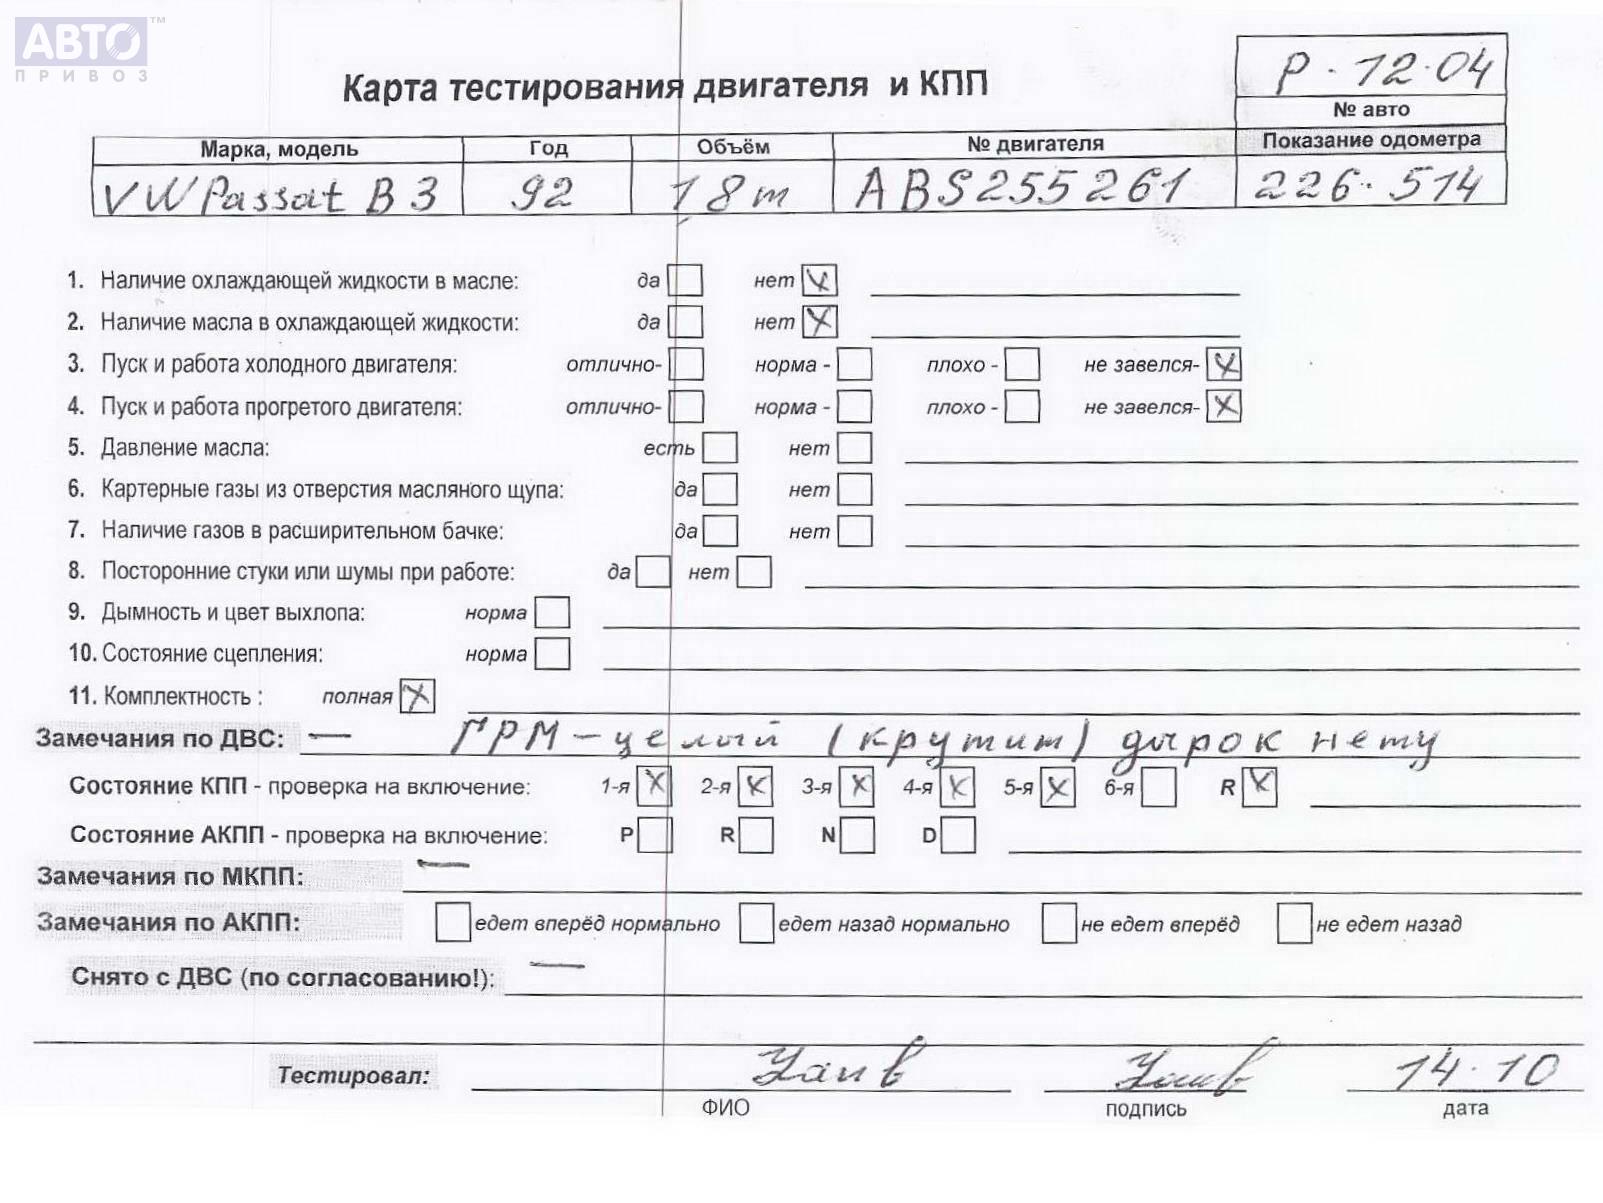 АВТО™
ПРИВОЗ
Карта тестирования двигателя и КПП
Р - 12.04
№ авто
Марка, модель Год Объём № двигателя Показание одометра
VW Passat B3 92 18m ABS255261 226.514
1. Наличие охлаждающей жидкости в масле: да нет X
2. Наличие масла в охлаждающей жидкости: да нет X
3. Пуск и работа холодного двигателя: отлично- норма - плохо - не завелся- X
4. Пуск и работа прогретого двигателя: отлично- норма - плохо - не завелся- X
5. Давление масла: есть нет
6. Картерные газы из отверстия масляного щупа: да нет
7. Наличие газов в расширительном бачке: да нет
8. Посторонние стуки или шумы при работе: да нет
9. Дымность и цвет выхлопа: норма
10. Состояние сцепления: норма
11. Комплектность : полная X
Замечания по ДВС: — ГРМ - целый (крутит) дырок нету
Состояние КПП - проверка на включение: 1-я X 2-я X 3-я X 4-я X 5-я X 6-я R X
Состояние АКПП - проверка на включение: P R N D
Замечания по МКПП: —
Замечания по АКПП: едет вперёд нормально едет назад нормально не едет вперёд не едет назад
Снято с ДВС (по согласованию!): —
Тестировал: 14.10
ФИО подпись дата